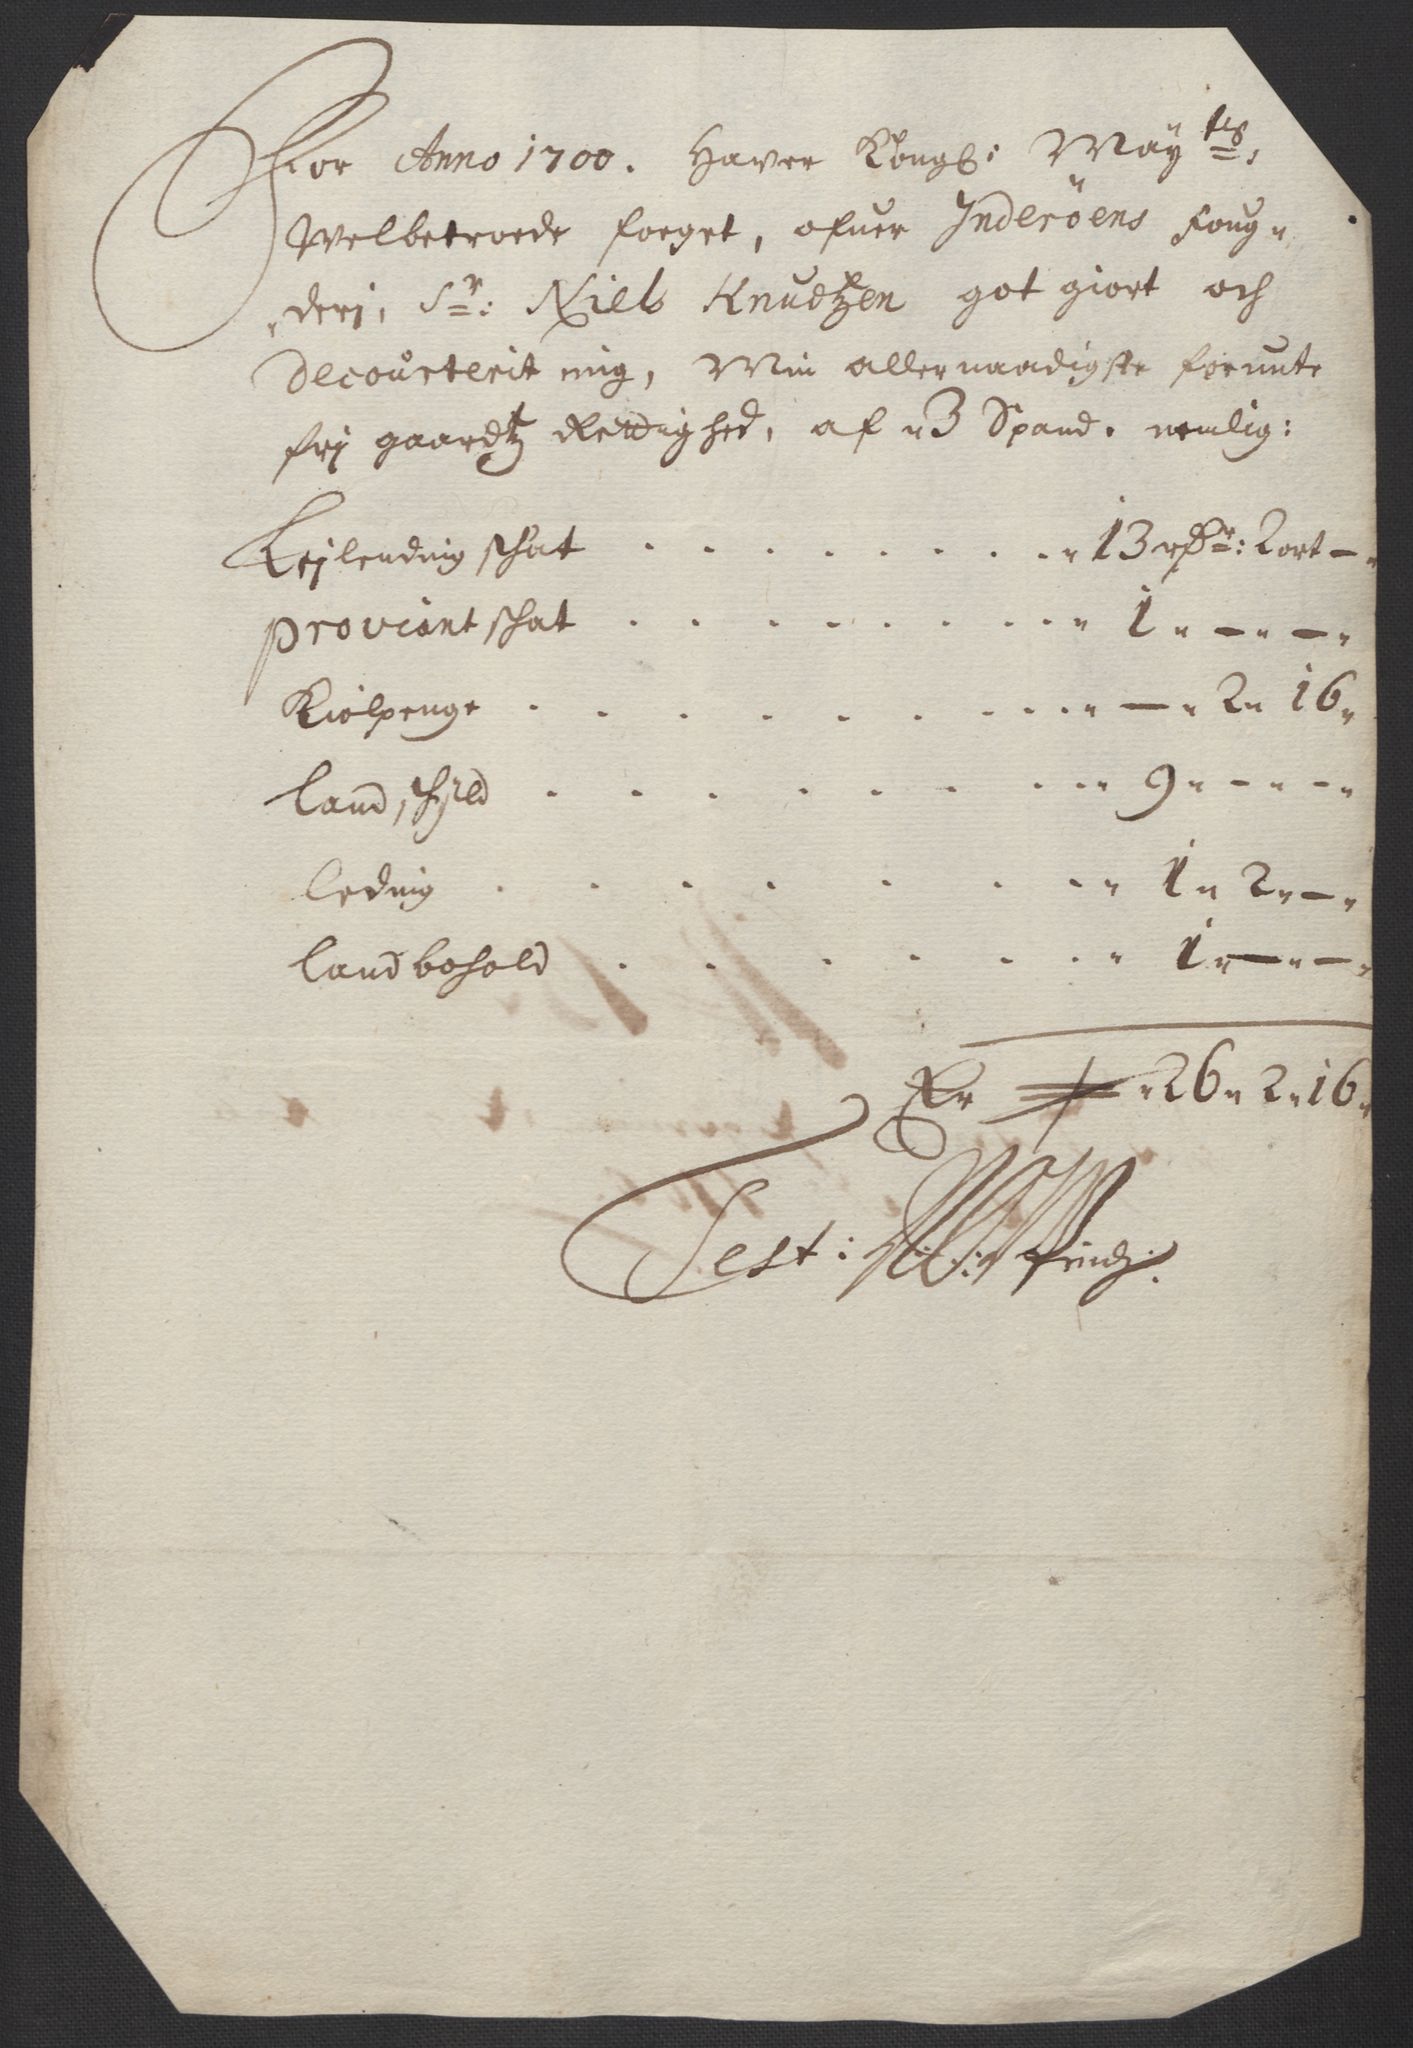 For Anno 1700. Haver Kongl: Maÿtes,
Welbetroede foeget, ofuer Inderöens foug-
derj, Sr: Niels Knudtzen got giort och
Decourterit mig, Min allernaadigste forunte
frj gaardtz Rettighed, af 3 Spand. nemlig:
Lejlending schat 13 rdr: 2 ort –
proviant schat 1 – –
Kiølpenge – 2 16
Land,schÿld 9 – –
Leding 1 2 –
Landbohold 1 – –
Er 26 2 16
Test: